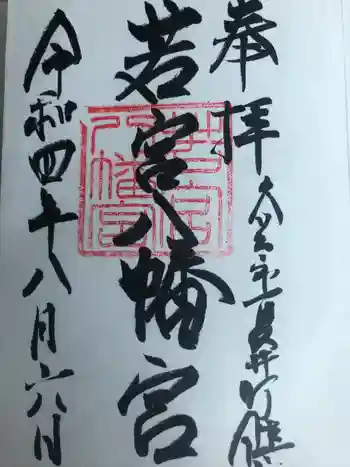 奉拝
若宮八幡宮
令和四年八月六日
若宮八幡宮